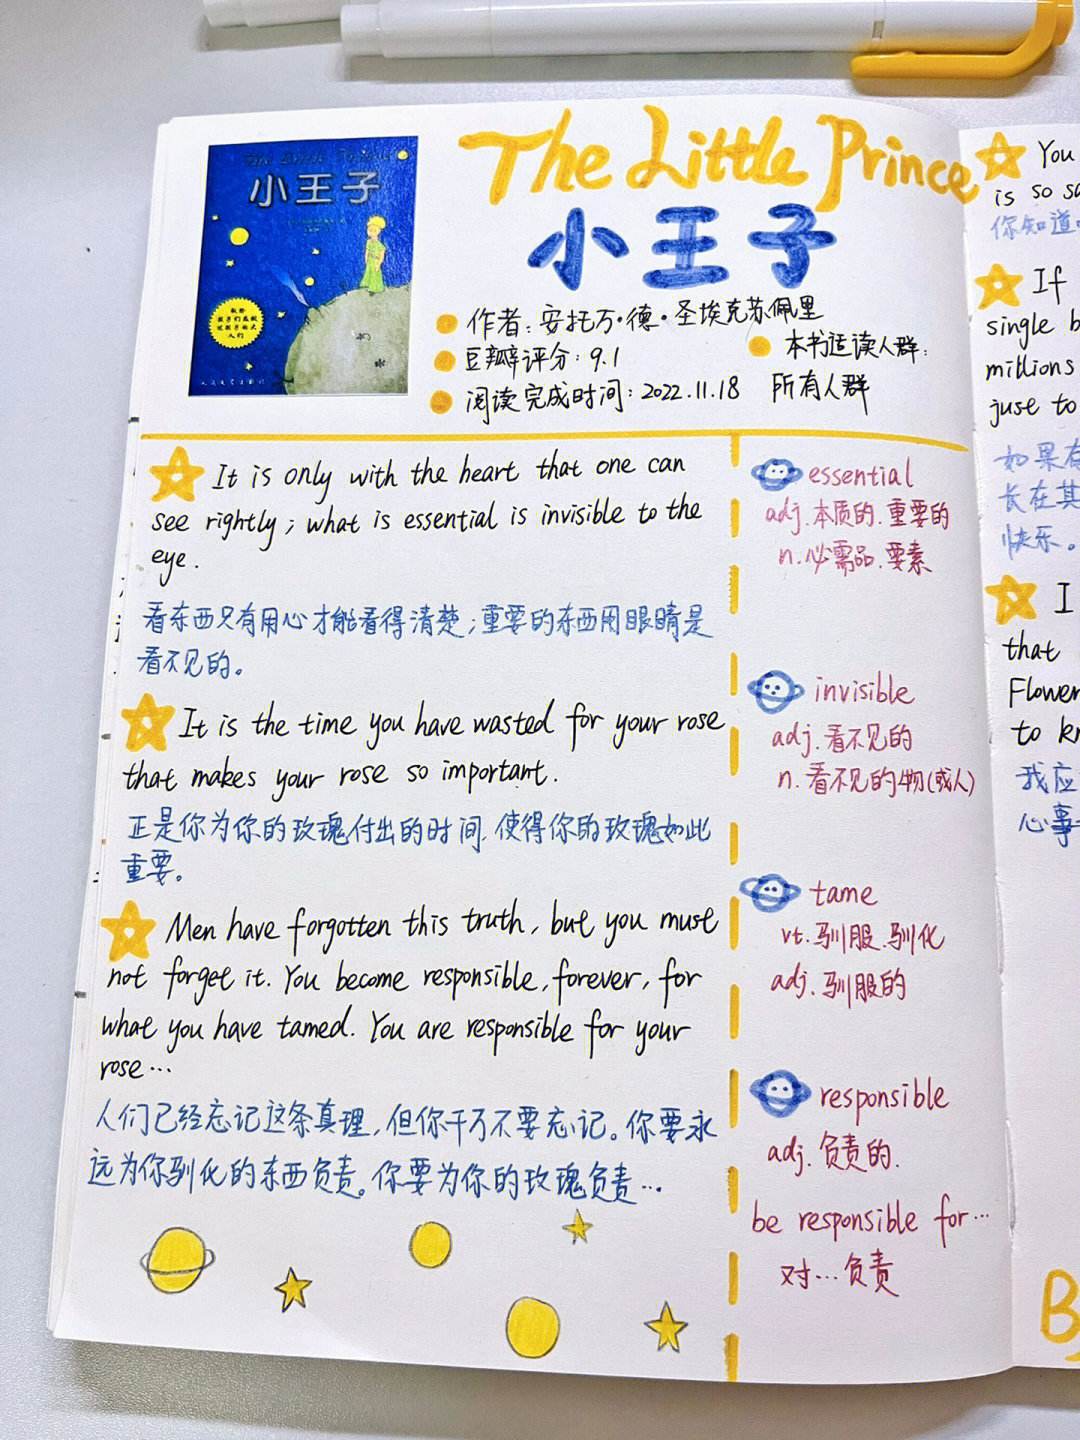 小王子
The Little Prince
小王子
作者：安托万·德·圣埃克苏佩里
豆瓣评分：9.1
本书适读人群：
阅读完成时间：2022.11.18
所有人群
献给
孩子们
人民文学出版社
It is only with the heart that one can
see rightly; what is essential is invisible to the
eye.
看东西只有用心才能看得清楚；重要的东西用眼睛是
看不见的。
It is the time you have wasted for your rose
that makes your rose so important.
正是你为你的玫瑰付出的时间，使得你的玫瑰如此
重要。
Men have forgotten this truth, but you must
not forget it. You become responsible, forever, for
what you have tamed. You are responsible for your
rose…
人们已经忘记这条真理，但你千万不要忘记。你要永
远为你驯化的东西负责。你要为你的玫瑰负责…
essential
adj.本质的.重要的
n.必需品.要素
invisible
adj.看不见的
n.看不见的物(或人)
tame
vt.驯服.驯化
adj.驯服的
responsible
adj.负责的.
be responsible for…
对…负责
You
is so sa
你知道
If
single b
millions
juse to
如果有
长在其
快乐。
I
that
Flower
to kn
我应
心事
B